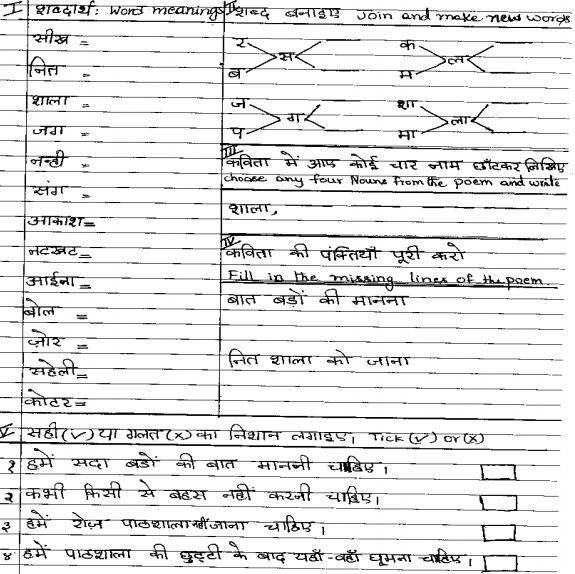 I शब्दार्थ: Word meanings
सीख =
नित =
शाला =
जग =
नन्ही =
संग =
आकाश =
नटखट =
आईना =
बोल =
ज़ोर =
सहेली =
कोटर =
II शब्द बनाइए Join and make new words
र
ब
स
क
म
ल
ज
प
ग
शा
मा
ला
III
कविता में आए कोई चार नाम छाँटकर लिखिए
choose any four Nouns from the poem and write
शाला,
IV
कविता की पंक्तियाँ पूरी करो
Fill in the missing lines of the poem
बात बड़ों की मानना
नित शाला को जाना
V सही (✓) या गलत (x) का निशान लगाइए। Tick (✓) or (x)
१ हमें सदा बडों की बात माननी चाहिए।
२ कभी किसी से बहस नहीं करनी चाहिए।
३ हमें रोज़ पाठशाला नहीं जाना चाहिए।
४ हमें पाठशाला की छुट्टी के बाद यहाँ-वहाँ घूमना चाहिए।